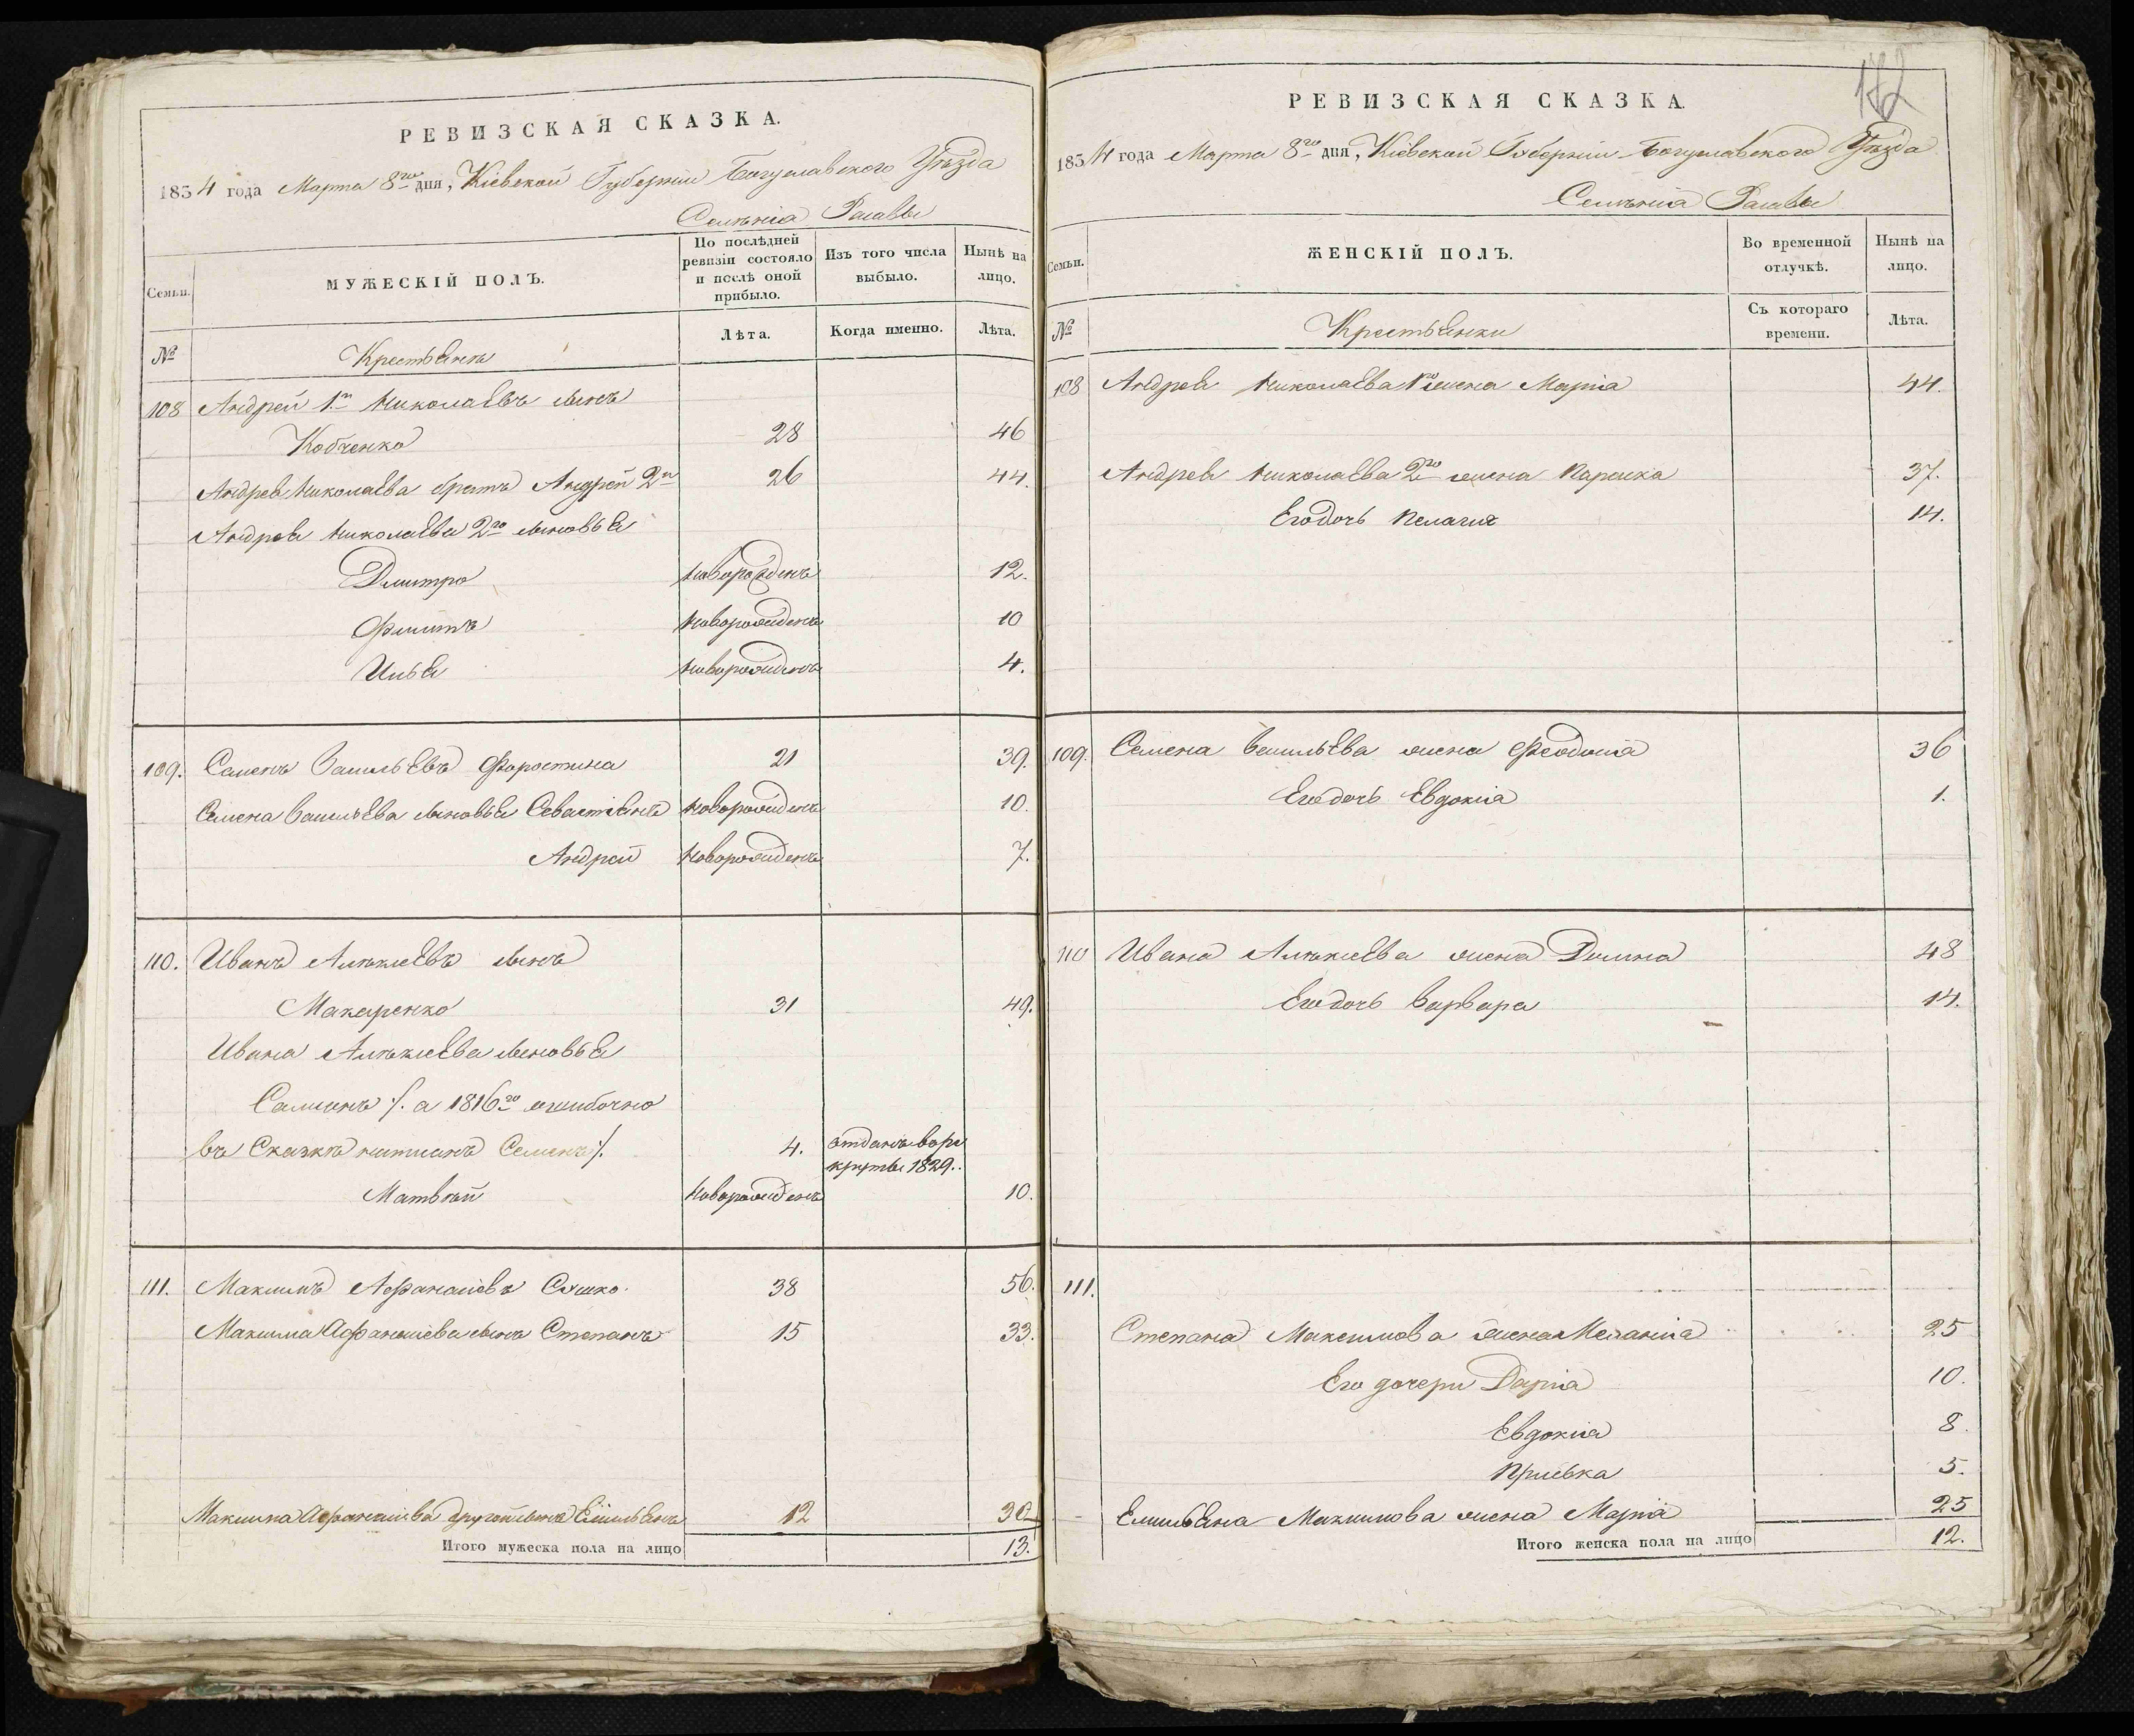 РЕВИЗСКАЯ СКАЗКА.
1834 года Марта 8го дня, Кіевской Губерніи Богуславского Уѣзда
Селѣнія Расавы
Семьи.
МУЖЕСКІЙ ПОЛЪ.
По послѣдней ревизіи состояло и послѣ оной прибыло.
Изъ того числа выбыло.
Нынѣ на лицо.
№
Крестьянъ
Лѣта.
Когда именно.
Лѣта.
108 Андрей 1й Николаевъ сынъ
Кобченко 28 46
Андрея Николаева братъ Андрей 2й 26 44.
Андрея Николаева 2го сыновья
Дмитро Новорожденъ 12.
Филитъ Новорожденъ 10
Илья Новорожденъ 4.
109. Семенъ Васильевъ Форостина 21 39.
Семена Васильева сыновья Севастіянъ Новорожденъ 10.
Андрей Новорожденъ 7.
110. Иванъ Алѣксѣевъ сынъ
Макаренко 31 49.
Ивана Алѣксѣева сыновья
Самсонъ /. а 1816го ошибочно
въ Сказкѣ написанъ Семенъ /. 4. отданъ въ ре
круты 1829.
Матвѣй Новорожденъ 10.
111. Максимъ Афанасіевъ Сушко 38 56.
Максима Афанасіева сынъ Степанъ 15 33.
Максима Афанасіева другой сынъ Емильянъ 12 30
Итого мужеска пола на лицо 13.
172
РЕВИЗСКАЯ СКАЗКА.
1834 года Марта 8го дня, Кіевской Губерніи Богуславского Уѣзда
Селѣнія Расавы
Семьи.
ЖЕНСКІЙ ПОЛЪ.
Во временной отлучкѣ.
Нынѣ на лицо.
№
Крестьянки
Съ котораго времени.
Лѣта.
108 Андрея Николаева 1го жена Марія 44.
Андрея Николаева 2го жена Параска 37.
Его дочь Пелагия 14.
109. Семена Васильева жена Феодосія 36
Его дочь Евдокія 1.
110 Ивана Алѣксѣева жена Домна 48
Его дочь Варвара 14.
111.
Степана Максимова жена Меланія 25
Его дочери Дарія 10.
Евдокія 8.
Приська 5.
Емильяна Максимова жена Марія 25
Итого женска пола на лицо 12.